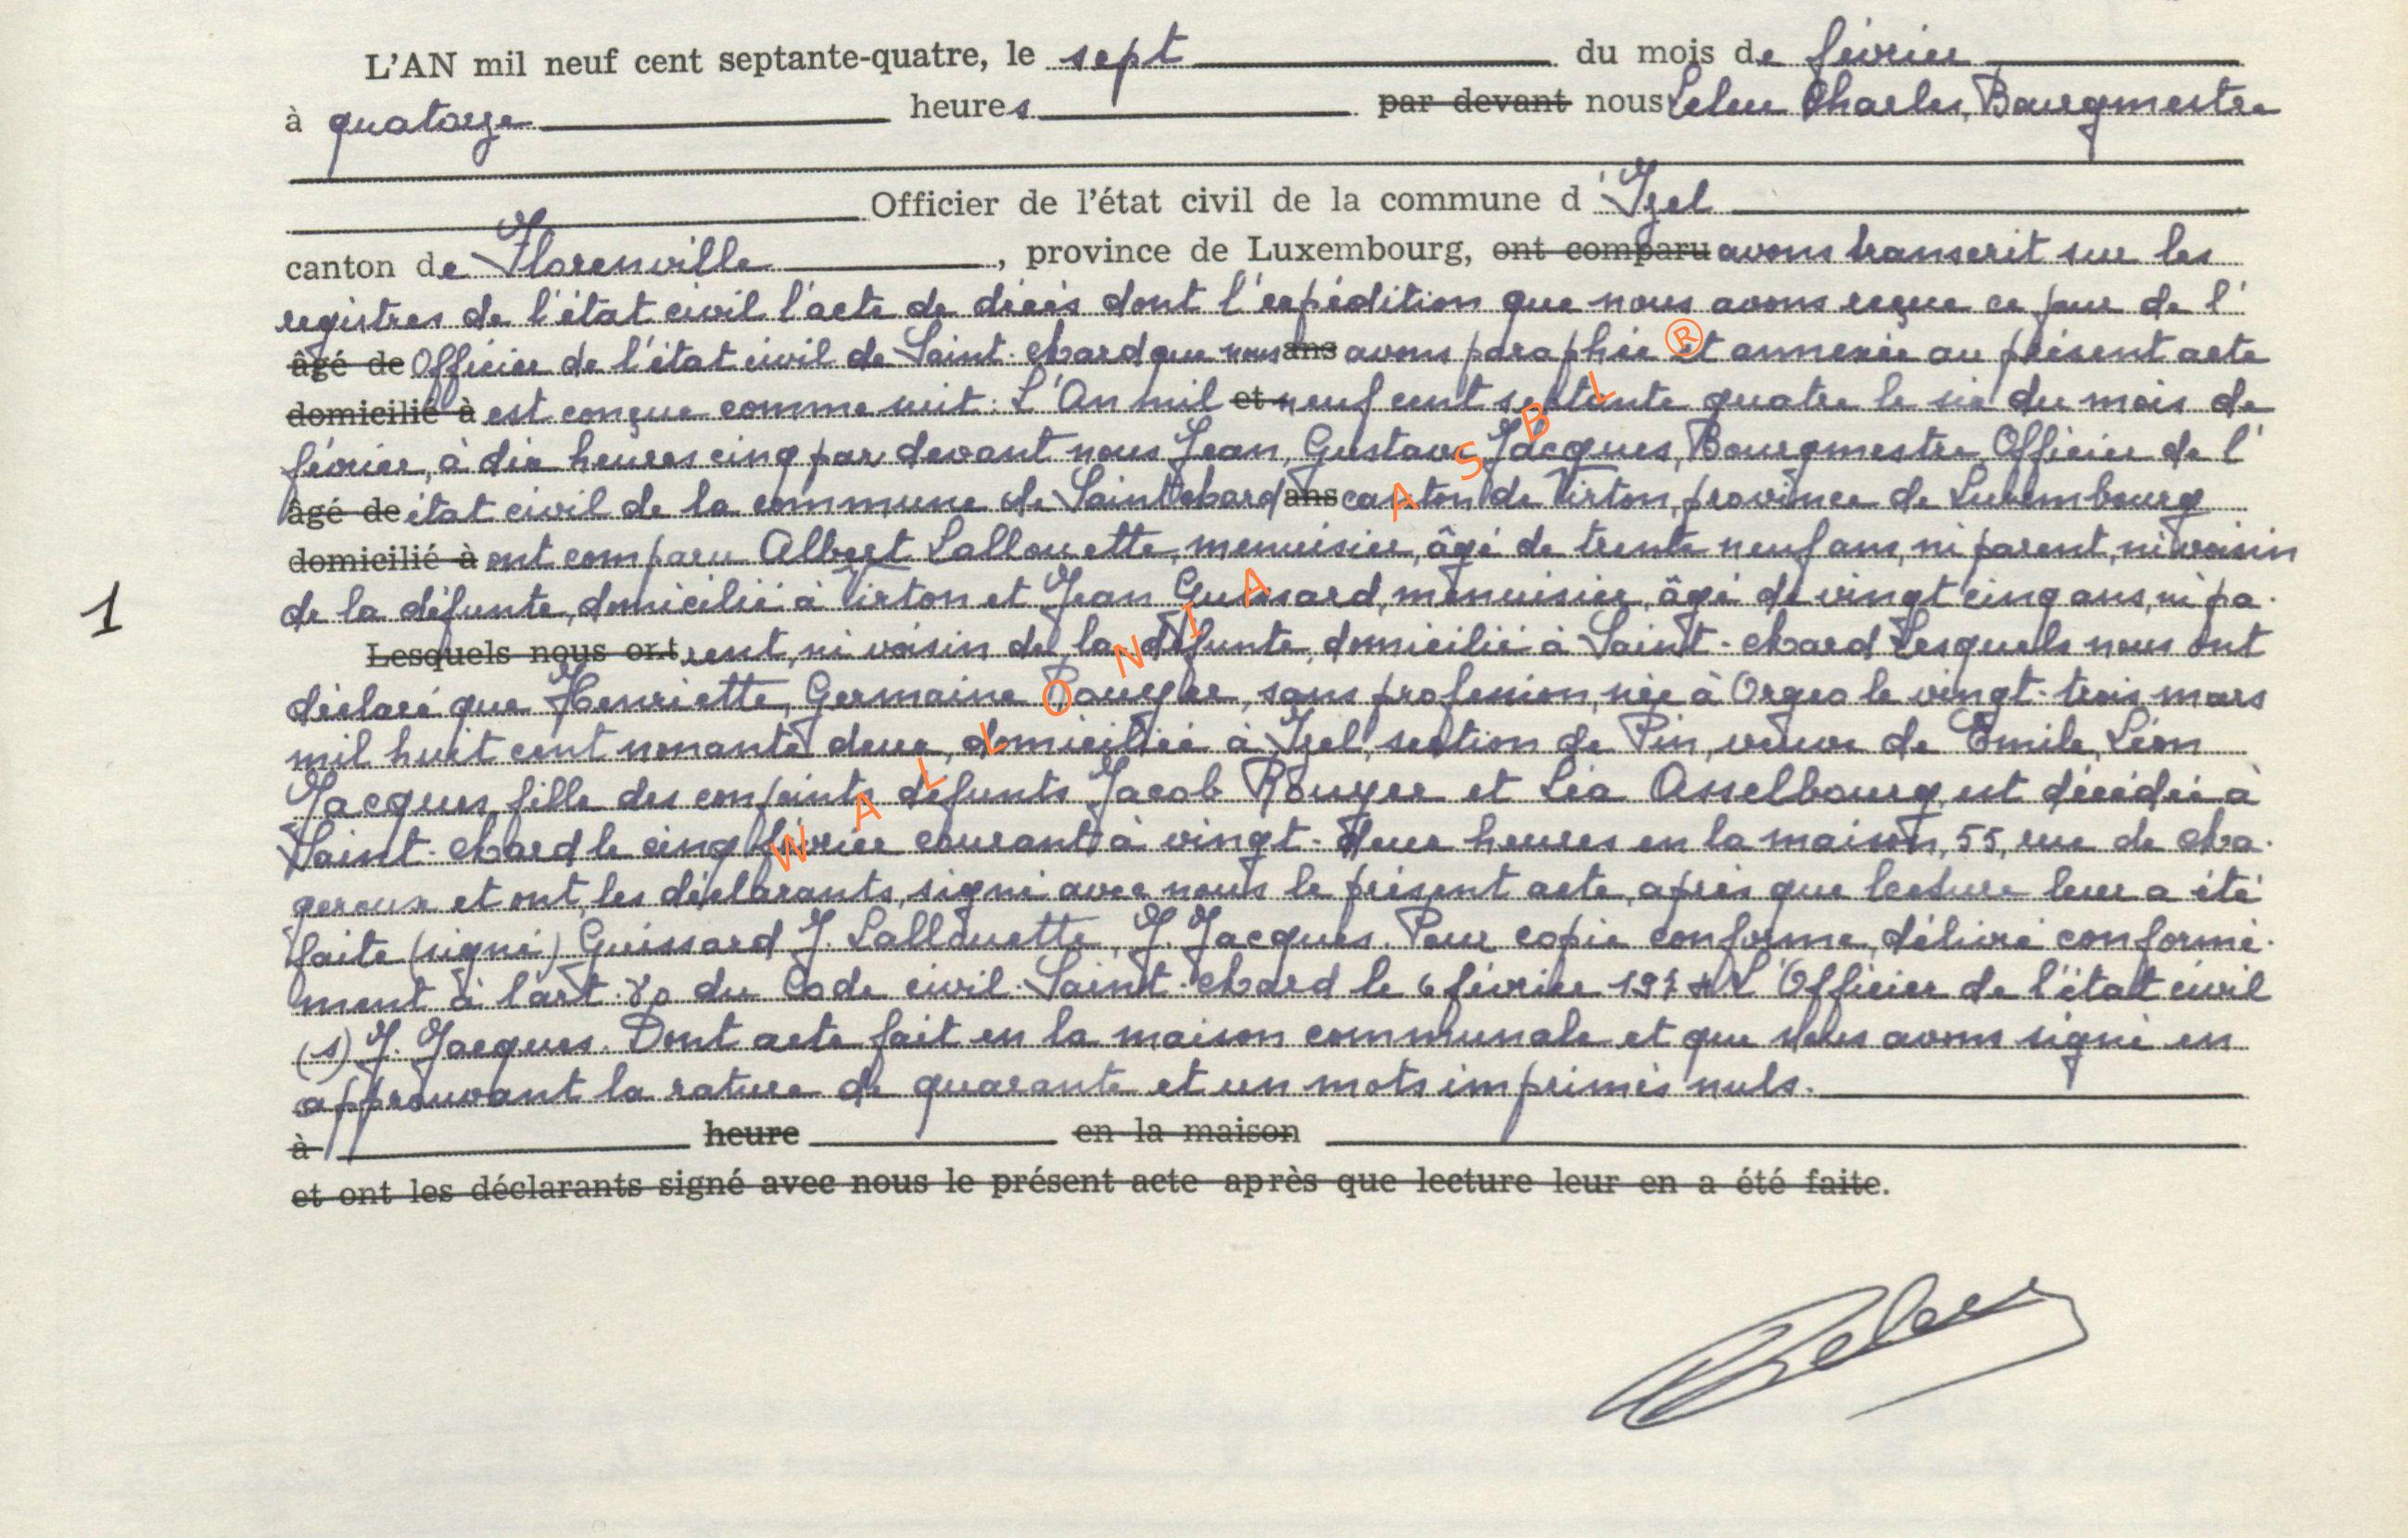 L'AN mil neuf cent septante-quatre, le sept du mois de février
à quatorze heures par devant nous Leleu Charles, Bourgmestre
Officier de l'état civil de la commune d'Izel
canton de Florenville, province de Luxembourg, ont comparu avons transcrit sur les
registres de l'état civil l'acte de décès dont l'expédition que nous avons reçue ce jour de l'
âgé de Officier de l'état civil de Saint-Mard que nous ans avons paraphée et annexée au présent acte
domicilié à est conçue comme suit: L'An mil et neuf cent septante quatre le six du mois de
février, à dix heures cinq par devant nous Jean, Gustave Jacques, Bourgmestre, Officier de l'
âgé de état civil de la commune de Saint Mard ans canton de Virton, province de Luxembourg
domicilié à ont comparu Albert Lallouette, menuisier, âgé de trente neuf ans, ni parent, ni voisin
de la défunte, domicilié à Virton et Jean Guissard, menuisier, âgé de vingt cinq ans, ni pa-
1
Lesquels nous ont rent, ni voisin de la défunte, domicilié à Saint-Mard Lesquels nous ont
déclaré que Henriette, Germaine Rouyer, sans profession, née à Orgeo le vingt-trois mars
mil huit cent nonante deux, domiciliée à Izel, section de Pin, veuve de Emile, Léon
Jacques, fille des conjoints défunts Jacob Rouyer et Léa Asselbourg, est décédée à
Saint-Mard le cinq février courant à vingt-deux heures en la maison, 55, rue de Ma-
geroux et ont, les déclarants, signé avec nous le présent acte, après que lecture leur a été
faite (signé) Guissard J. Lallouette, J. Jacques. Pour copie conforme, délivré conformé-
ment à l'art. 80 du Code civil. Saint-Mard le 6 février 1974 L'Officier de l'état civil
(s) J. Jacques. Dont acte fait en la maison communale et que nous avons signé en
approuvant la rature de quarante et un mots imprimés nuls.
à heure en la maison
et ont les déclarants signé avec nous le présent acte après que lecture leur en a été faite.
Leleu
WALLONIA ASBL ®